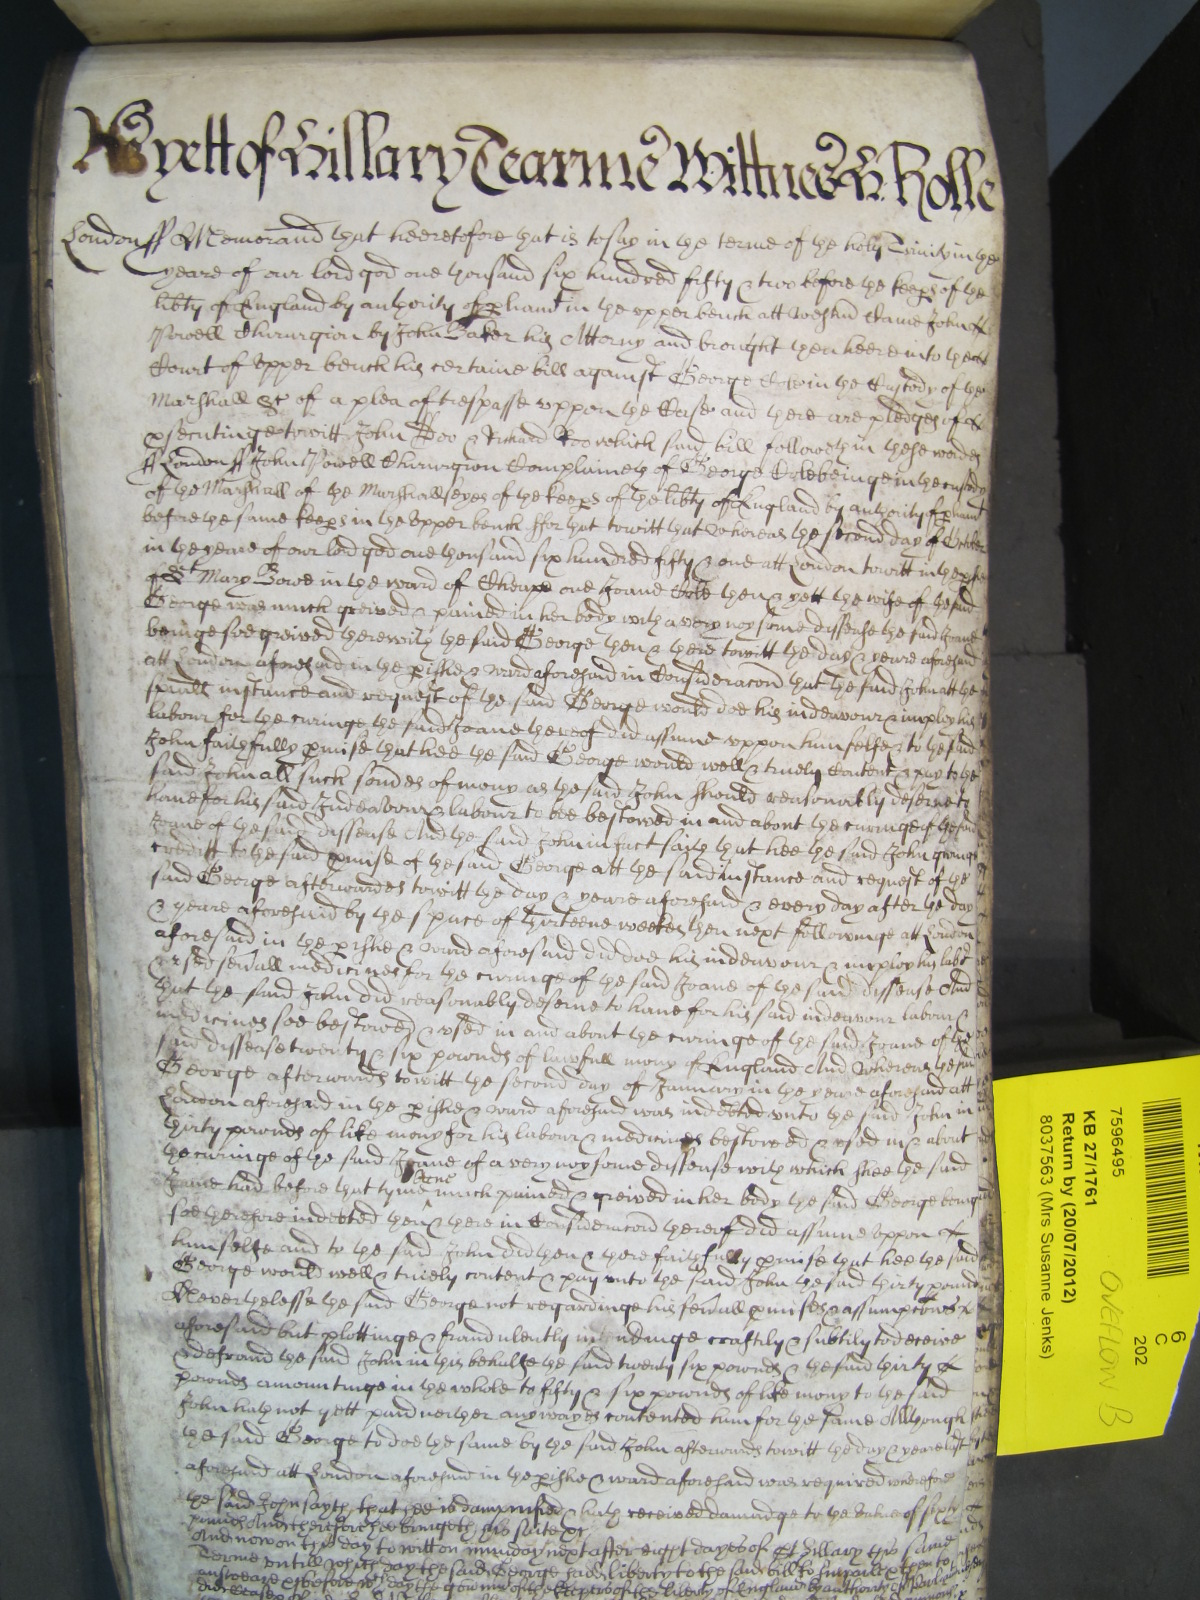 As yett of Hillary Tearme Wittnes H: Rolle
London ss Memorand that heeretofore that is to say in the terme of the holy Trinity in the
yeare of our lord god one thousand six hundred fifty & two before the keeps of the
libty of England by authority of pliamt in the upper bench att Westm Came John
Powell Chirurgion by John Baker his Attorny and brought then heere into the
Court of Upper bench his certaine bill against George Cole in the Custody of the
Marshall &c of a plea of trespasse uppon the Case and there are pledges of
psecutinge towitt John Doo & Richard Roo which said bill followeth in these wordes
ss London ss John Powell Chirurgion Complaineth of George Cole beinge in the custody
of the Marshall of the Marshallseyes of the keeps of the libty of England by authority of pliamt
before the same keeps in the Upper bench ffor that towitt that Whereas the second day of October
in the yeare of our lord god one thousand six hundred fifty & one att London towitt in the pishe
of St Mary Bowe in the ward of Cheape one Joane Cole then & yett the wife of the said
George was much greived & pained in her body with a very noysome dissease the said Joane
beinge soe greived therewith the said George then & there towitt the day & yeare aforesaid
att London aforesaid in the pishe & ward aforesaid in Consideracon that the said John att the
spiall instance and request of the said George would doe his indeavour & imploy his
labour for the curinge the said Joane thereof did assume uppon himselfe & to the said
John faithfully pmise that hee the said George would well & truely Content & pay to the
said John all such somes of mony as the said John should reasonably deserve to
have for his said Indeavour & labour to bee bestowed in and about the curinge of the said
Joane of the said dissease And the said John in fact saith that hee the said John givinge
creditt to the said pmise of the said George att the said instance and request of the
said George afterwardes towitt the day & yeare aforesaid & every day after the day
& yeare aforesaid by the space of thirteene weekes then next followinge att London
aforesaid in the pishe & ward aforesaid did doe his indeavour & imploy his labor
& used sevall medicines for the curinge of the said Joane of the said dissease And
that the said John did reasonably deserve to have for his said indeavour labour &
medicines soe bestowed & used in and about the curinge of the said Joane of the
said dissease twenty & six pownds of lawfull mony of England And Whereas the said
George afterwards towitt the second day of January in the yeare aforesaid att
London aforesaid in the pishe & ward aforesaid was indebted unto the said John in
thirty pownds of like mony for his labour & medicines bestowed & used in & about
the curinge of the said Joane of a very noysome dissease with which shee the said
Joane had before that tyme beene much pained & greived in her body the said George being
soe therefore indebted then & there in Consideracon thereof did assume uppon
himselfe and to the said John did then & there faithfully pmise that hee the said
George would well & truely content & pay unto the said John the said thirty pownds
Neverthelesse the said George not regardinge his sevall pmises & assumptions
aforesaid but plottinge & fraudulently intendinge craftily & subtily to deceive
& defraud the said John in this behalfe the said twenty six pownds & the said thirty
pownds amountinge in the whole to fifty & six pownds of like mony to the said
John hath not yett paid neither any wayes contented him for the same Although
the said George to doe the same by the said John afterwards towitt the day & yeare last
aforesaid att London aforesaid in the pishe & ward aforesaid was required wherefore
the said John sayth that hee is dampnified & hath received damadge to the value of sixty
pownds And therefore hee bringeth his suite &c
And now on this day to witt on munday next after eight dayes of St Hillary this same
Terme untill which day the said George hadd liberty to the said bill to imparle & then to
answeare &c before the keepers of the liberty of England by authority of Parliament
7596495
KB 27/1761
Return by (20/07/2012)
8037563 (Mrs Susanne Jenks)
6
C
202
OVERFLOW B